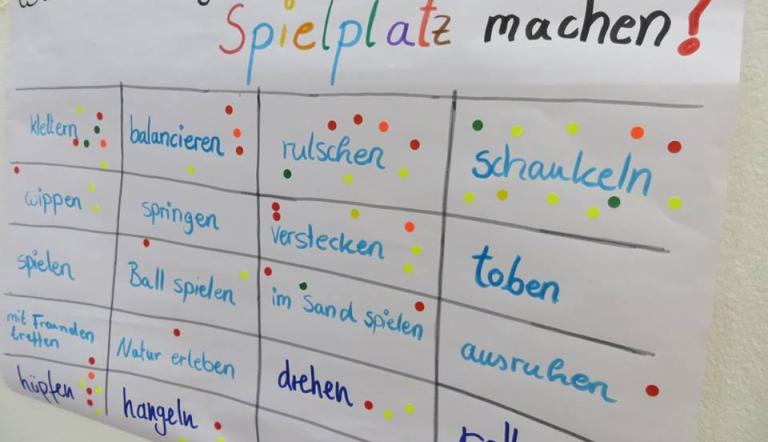 Spielplatz machen!
klettern balancieren rutschen schaukeln
wippen springen verstecken toben
spielen Ball spielen im Sand spielen ausruhen
mit Freunden
treffen
Natur erleben drehen
hüpfen hangeln